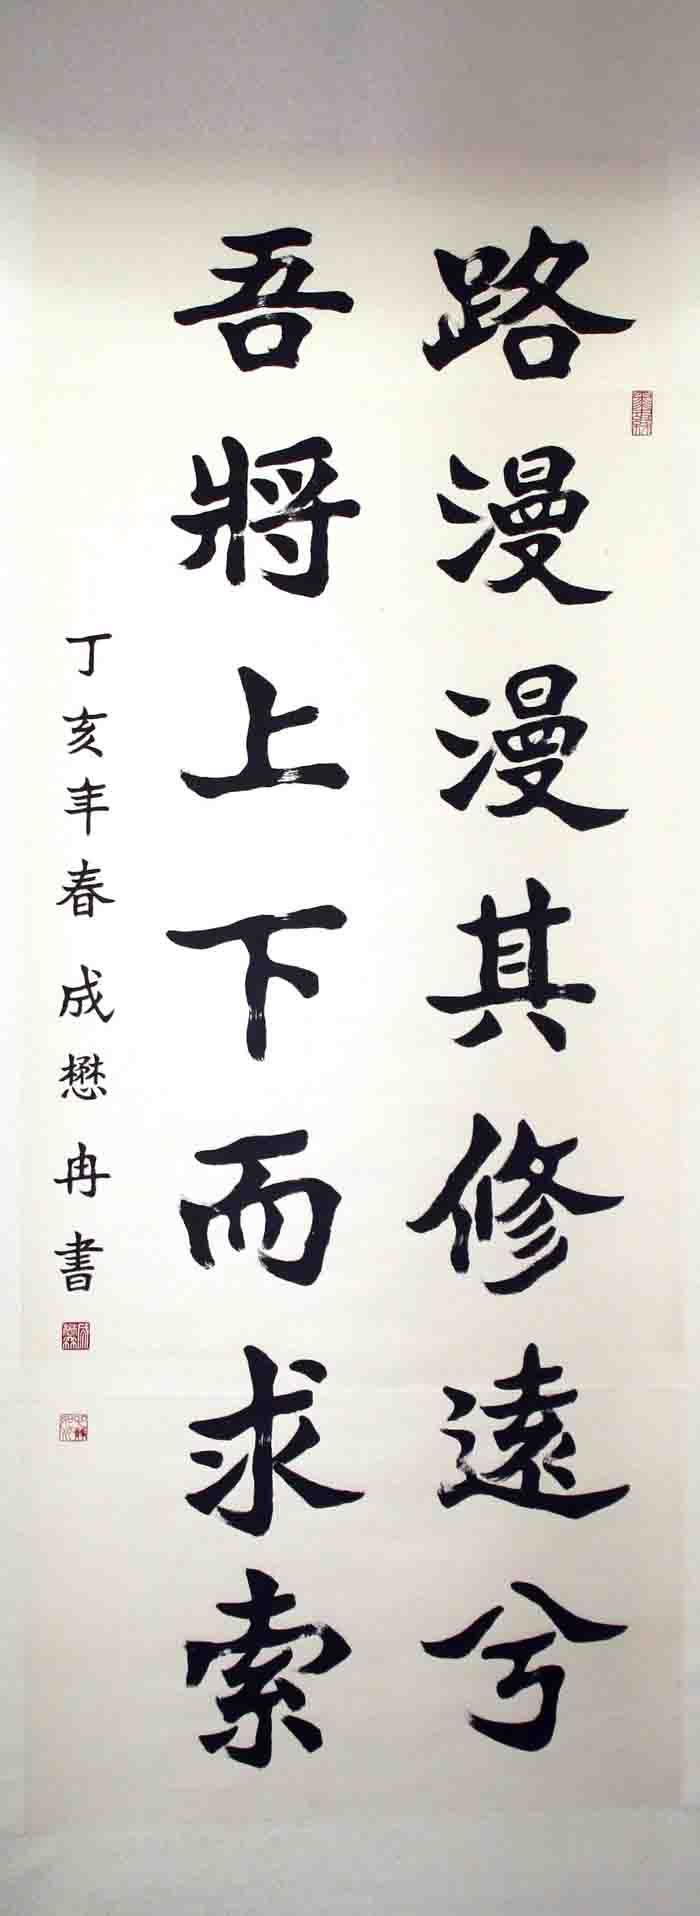 路漫漫其修遠兮
吾將上下而求索
丁亥年春 成懋冉書